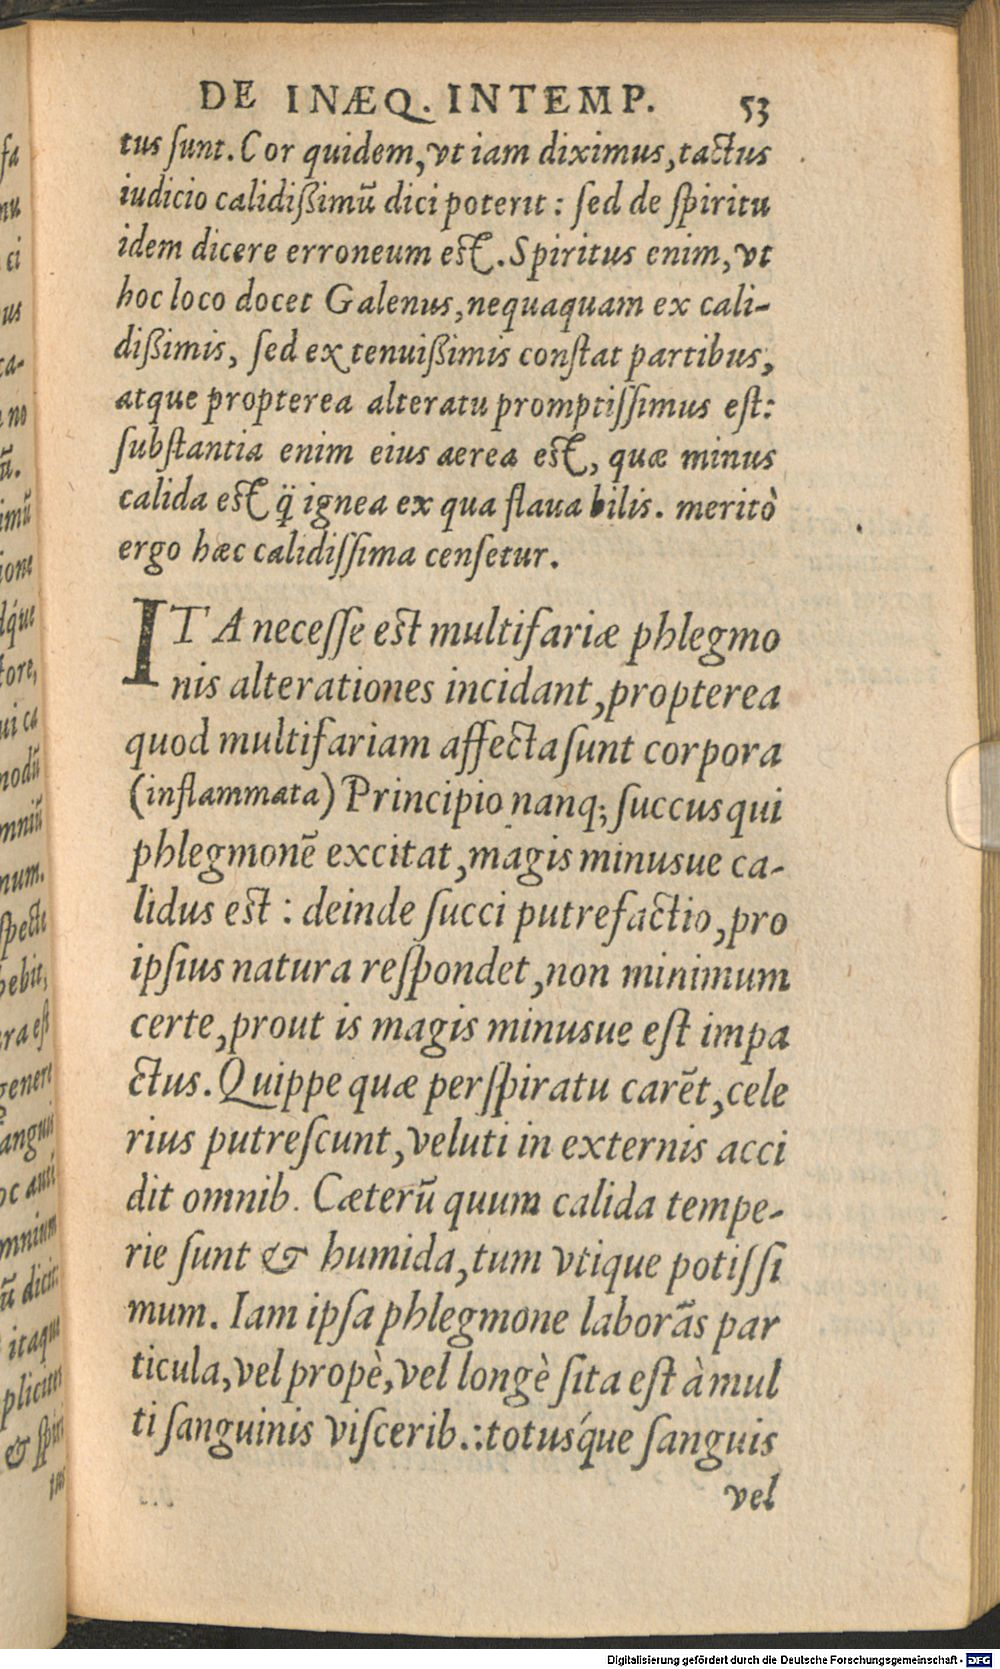 DE INÆQ. INTEMP. 53
tus ſunt. Cor quidem, vt iam diximus, tactus
iudicio calidißimũ dici poterit : ſed de ſpiritu
idem dicere erroneum est. Spiritus enim, vt
hoc loco docet Galenus, nequaquam ex cali-
dißimis, ſed ex tenuißimis conſtat partibus,
atque propterea alteratu promptiſſimus eſt:
ſubſtantia enim eius aerea est, quæ minus
calida est q̃ ignea ex qua flaua bilis. meritò
ergo hæc calidiſſima cenſetur.
ITA neceſſe est multifariæ phlegmo
nis alterationes incidant, propterea
quod multifariam affecta ſunt corpora
(inflammata) Principio nanq; ſuccus qui
phlegmonē excitat, magis minusue ca-
lidus est : deinde ſucci putrefactio, pro
ipſius natura reſpondet, non minimum
certe, prout is magis minusue eſt impa
ctus. Quippe quæ perſpiratu carēt, cele
rius putreſcunt, veluti in externis acci
dit omnib. Cæterũ quum calida tempe-
rie ſunt & humida, tum vtique potiſſi
mum. Iam ipſa phlegmone laborãs par
ticula, vel propè, vel longè ſita eſt à mul
ti ſanguinis viſcerib.: totusq́ue ſanguis
vel
fa
nu
ci
us
ca-
no
ũ.
imũ
ione
dq́ue
tore,
ui ca
modũ
mniũ
num.
ſpecte
bebit,
ra eſt
genere
ſanguis
oc
mnium
ũ dicit:
itaque
& ſpiri
tus
Digitalisierung gefördert durch die Deutsche Forschungsgemeinschaft - DFG